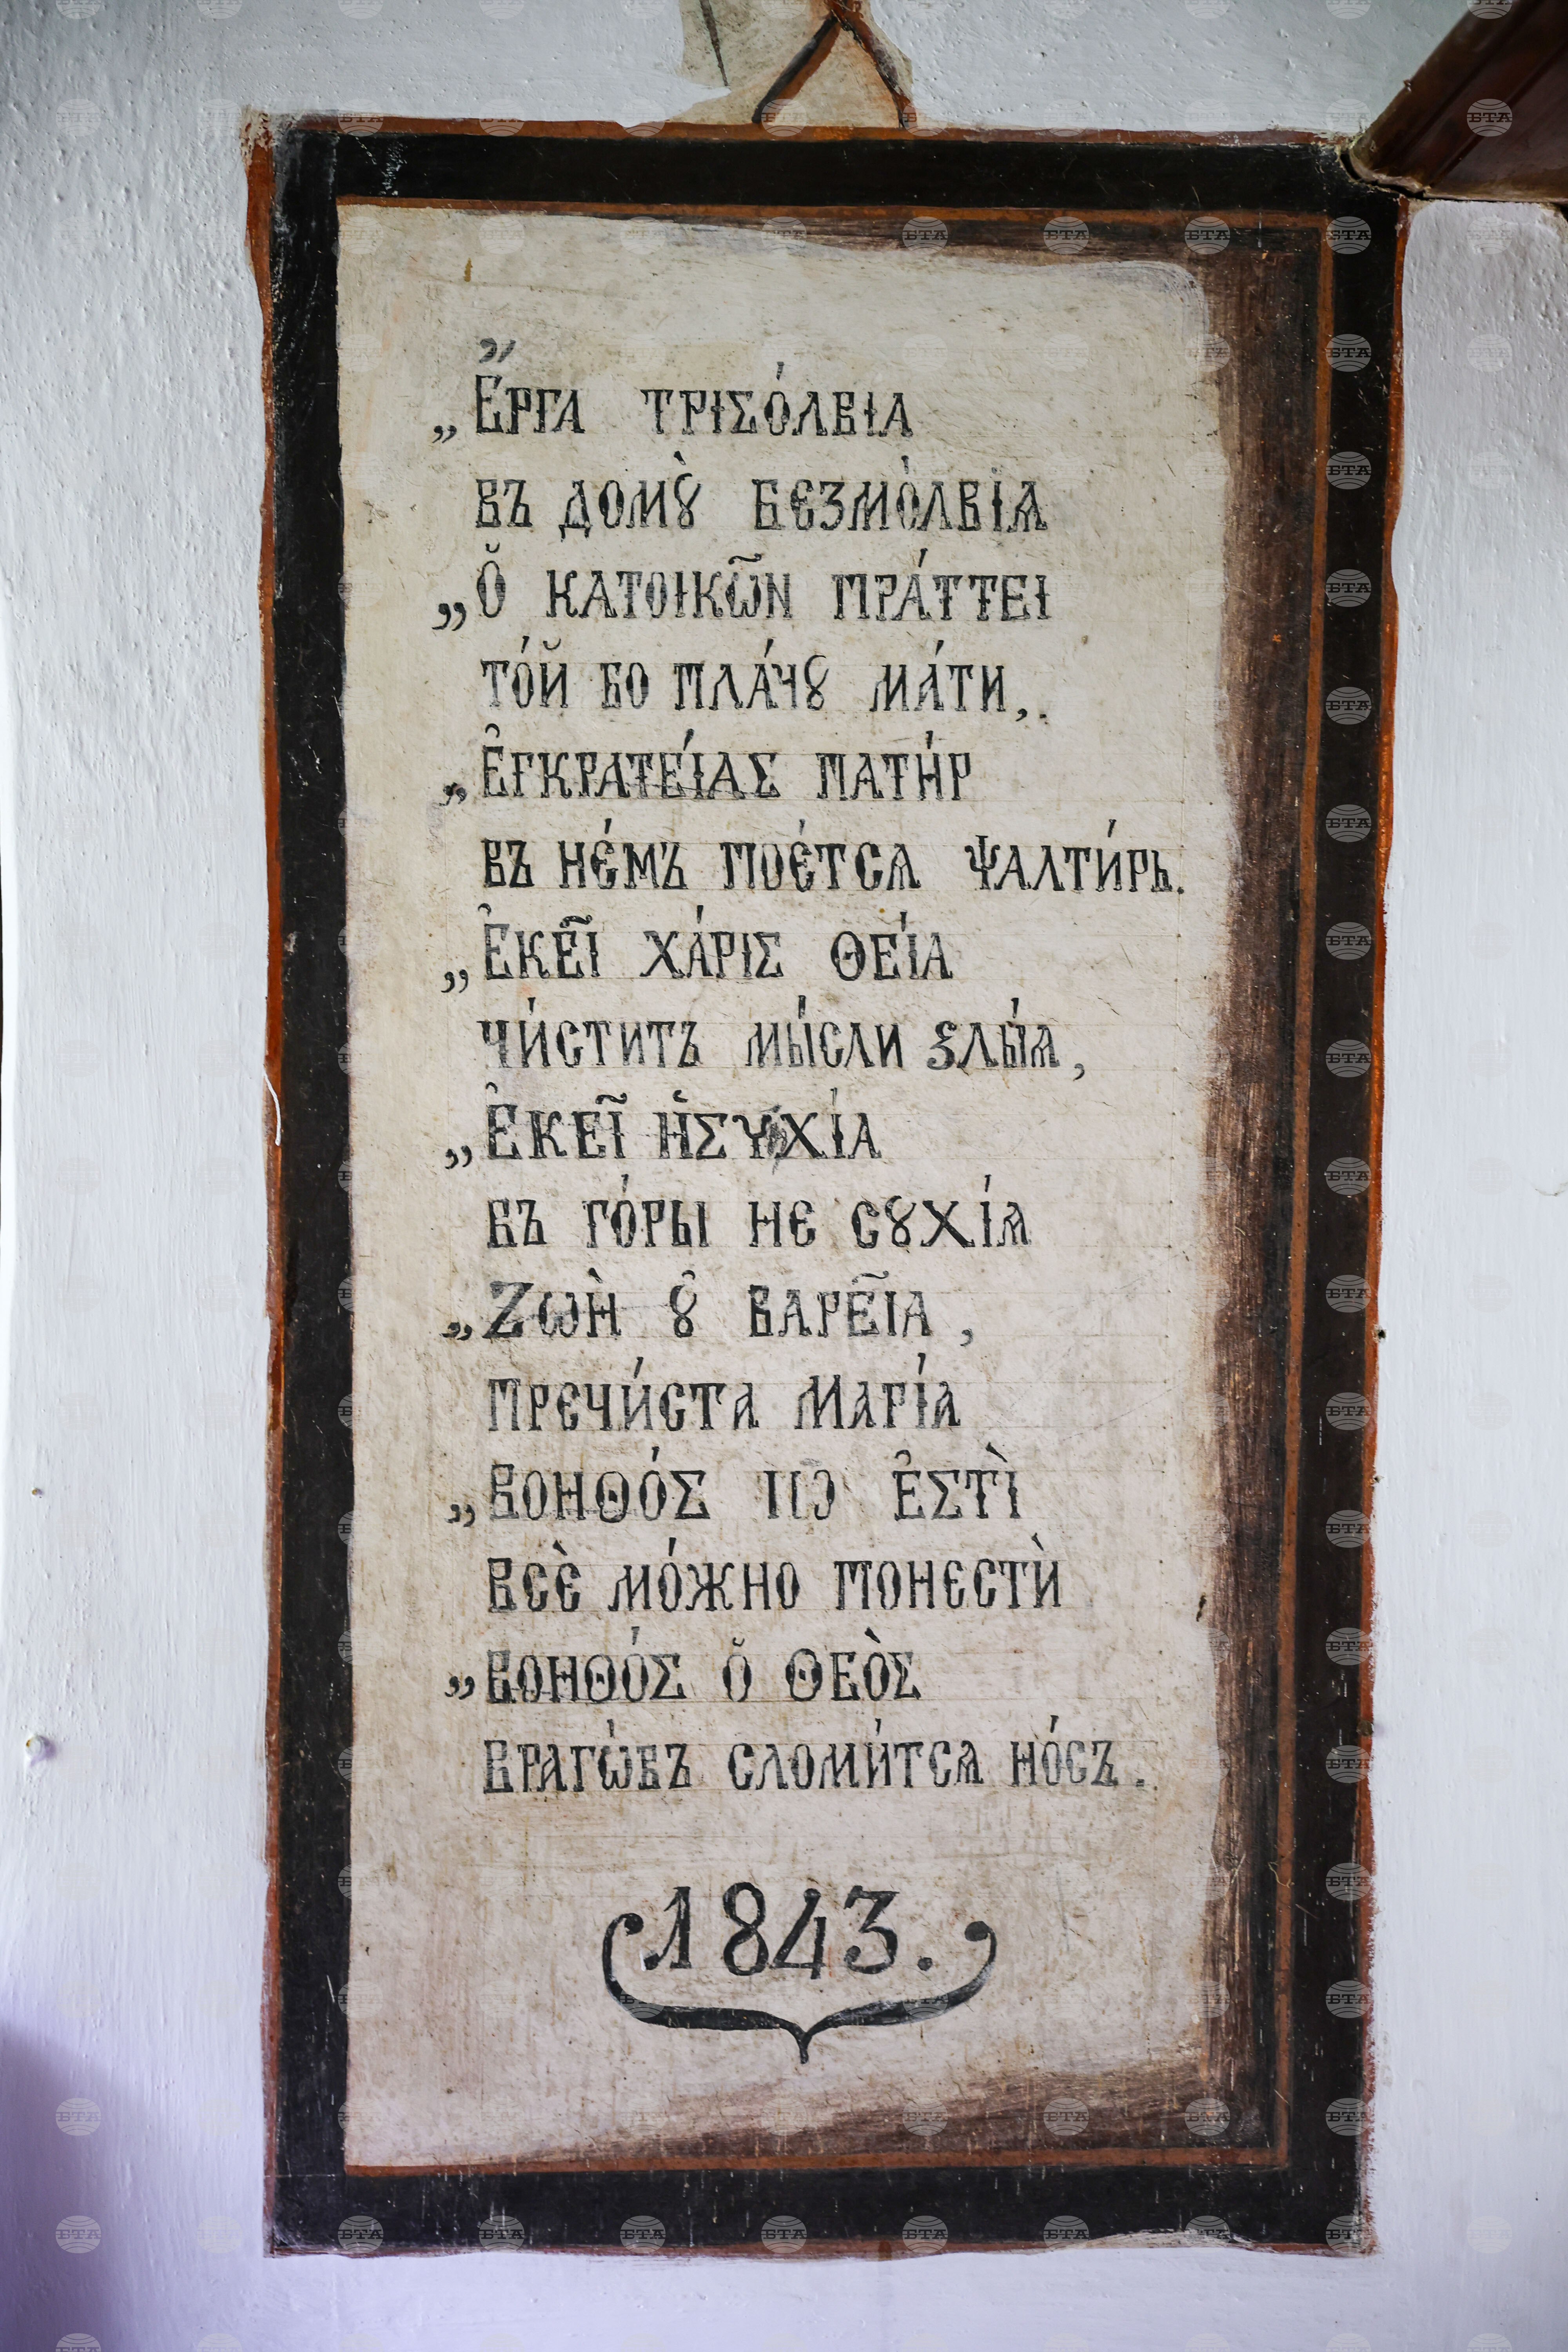 „Ἔργα τρισόλβια
въ домꙋ̀ безмо́лвїѧ
„Ὁ κατοικῶν πράττει
то́й бо пла́чꙋ ма́ти,.
„Ἐγκρατείας πατήρ
въ не́мъ пое́тсѧ ѱалти́рь.
„Ἐκεῖ χάρις θεία
чи́ститъ мы́сли ѕлы́ѧ,
„Ἐκεῖ ἡσυχία
въ го́ры не сꙋхі́ѧ
„Ζωὴ οὐ βαρεῖα,
Пречи́ста Марі́а
„Βοηθός ἐστὶ
всѐ мо́жно понестѝ
„Βοηθός ὁ Θεὸς
врагѡ́въ сломи́тсѧ но́съ.
1843.